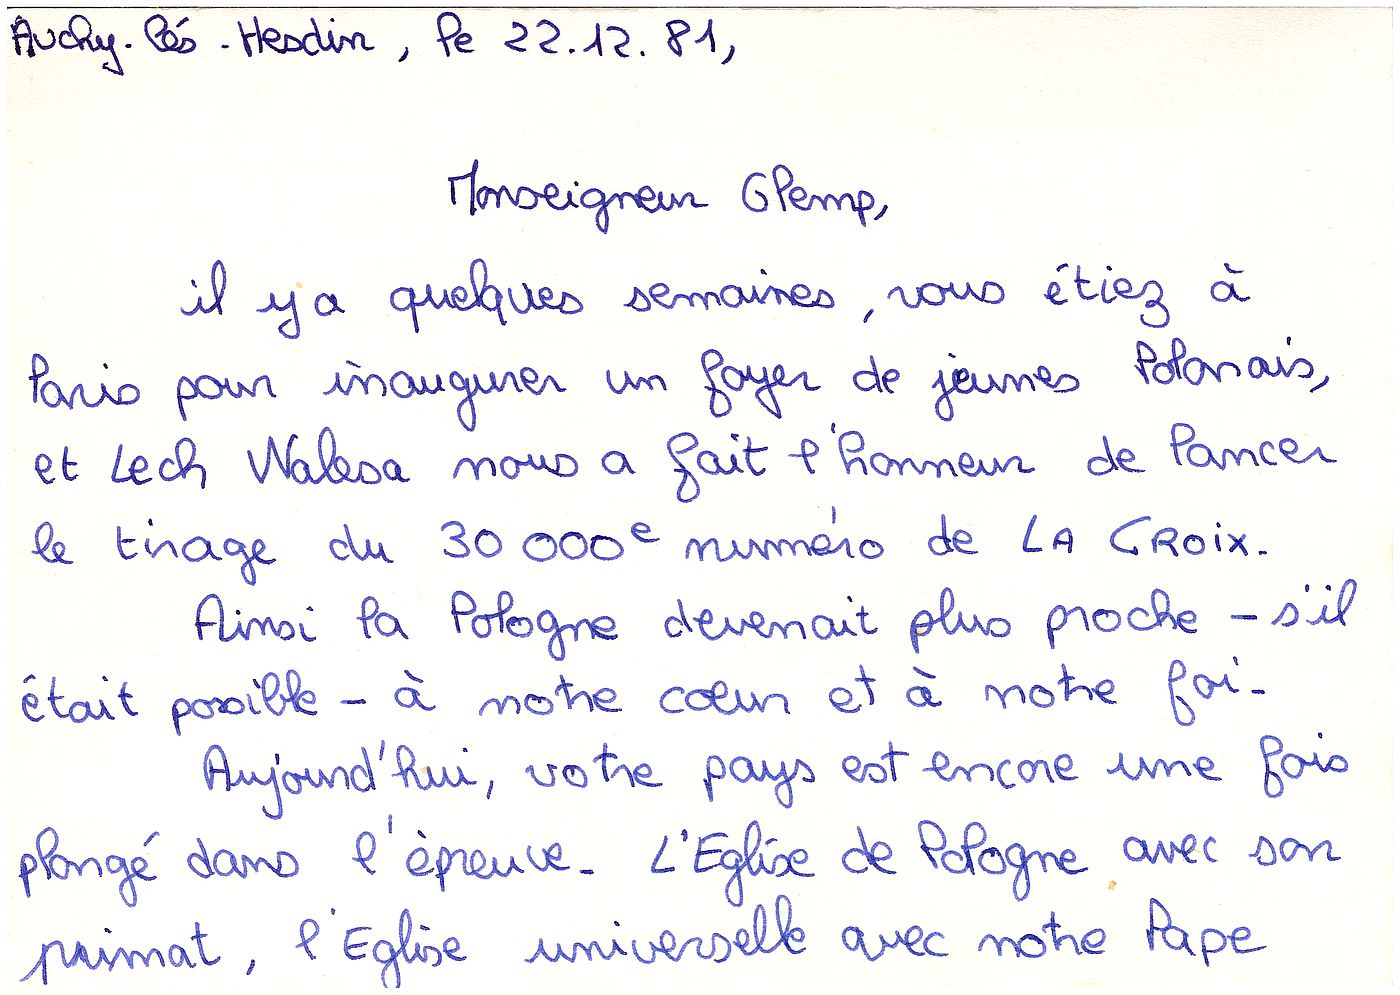 Auchy-lès-Hesdin, le 22.12.81,
Monseigneur Glemp,
il y a quelques semaines, vous étiez à
Paris pour inaugurer un foyer de jeunes Polonais,
et Lech Walesa nous a fait l'honneur de lancer
le tirage du 30 000e numéro de LA CROIX.
Ainsi la Pologne devenait plus proche - s'il
était possible - à notre cœur et à notre foi.
Aujourd'hui, votre pays est encore une fois
plongé dans l'épreuve. L'Eglise de Pologne avec son
primat, l'Eglise universelle avec notre Pape